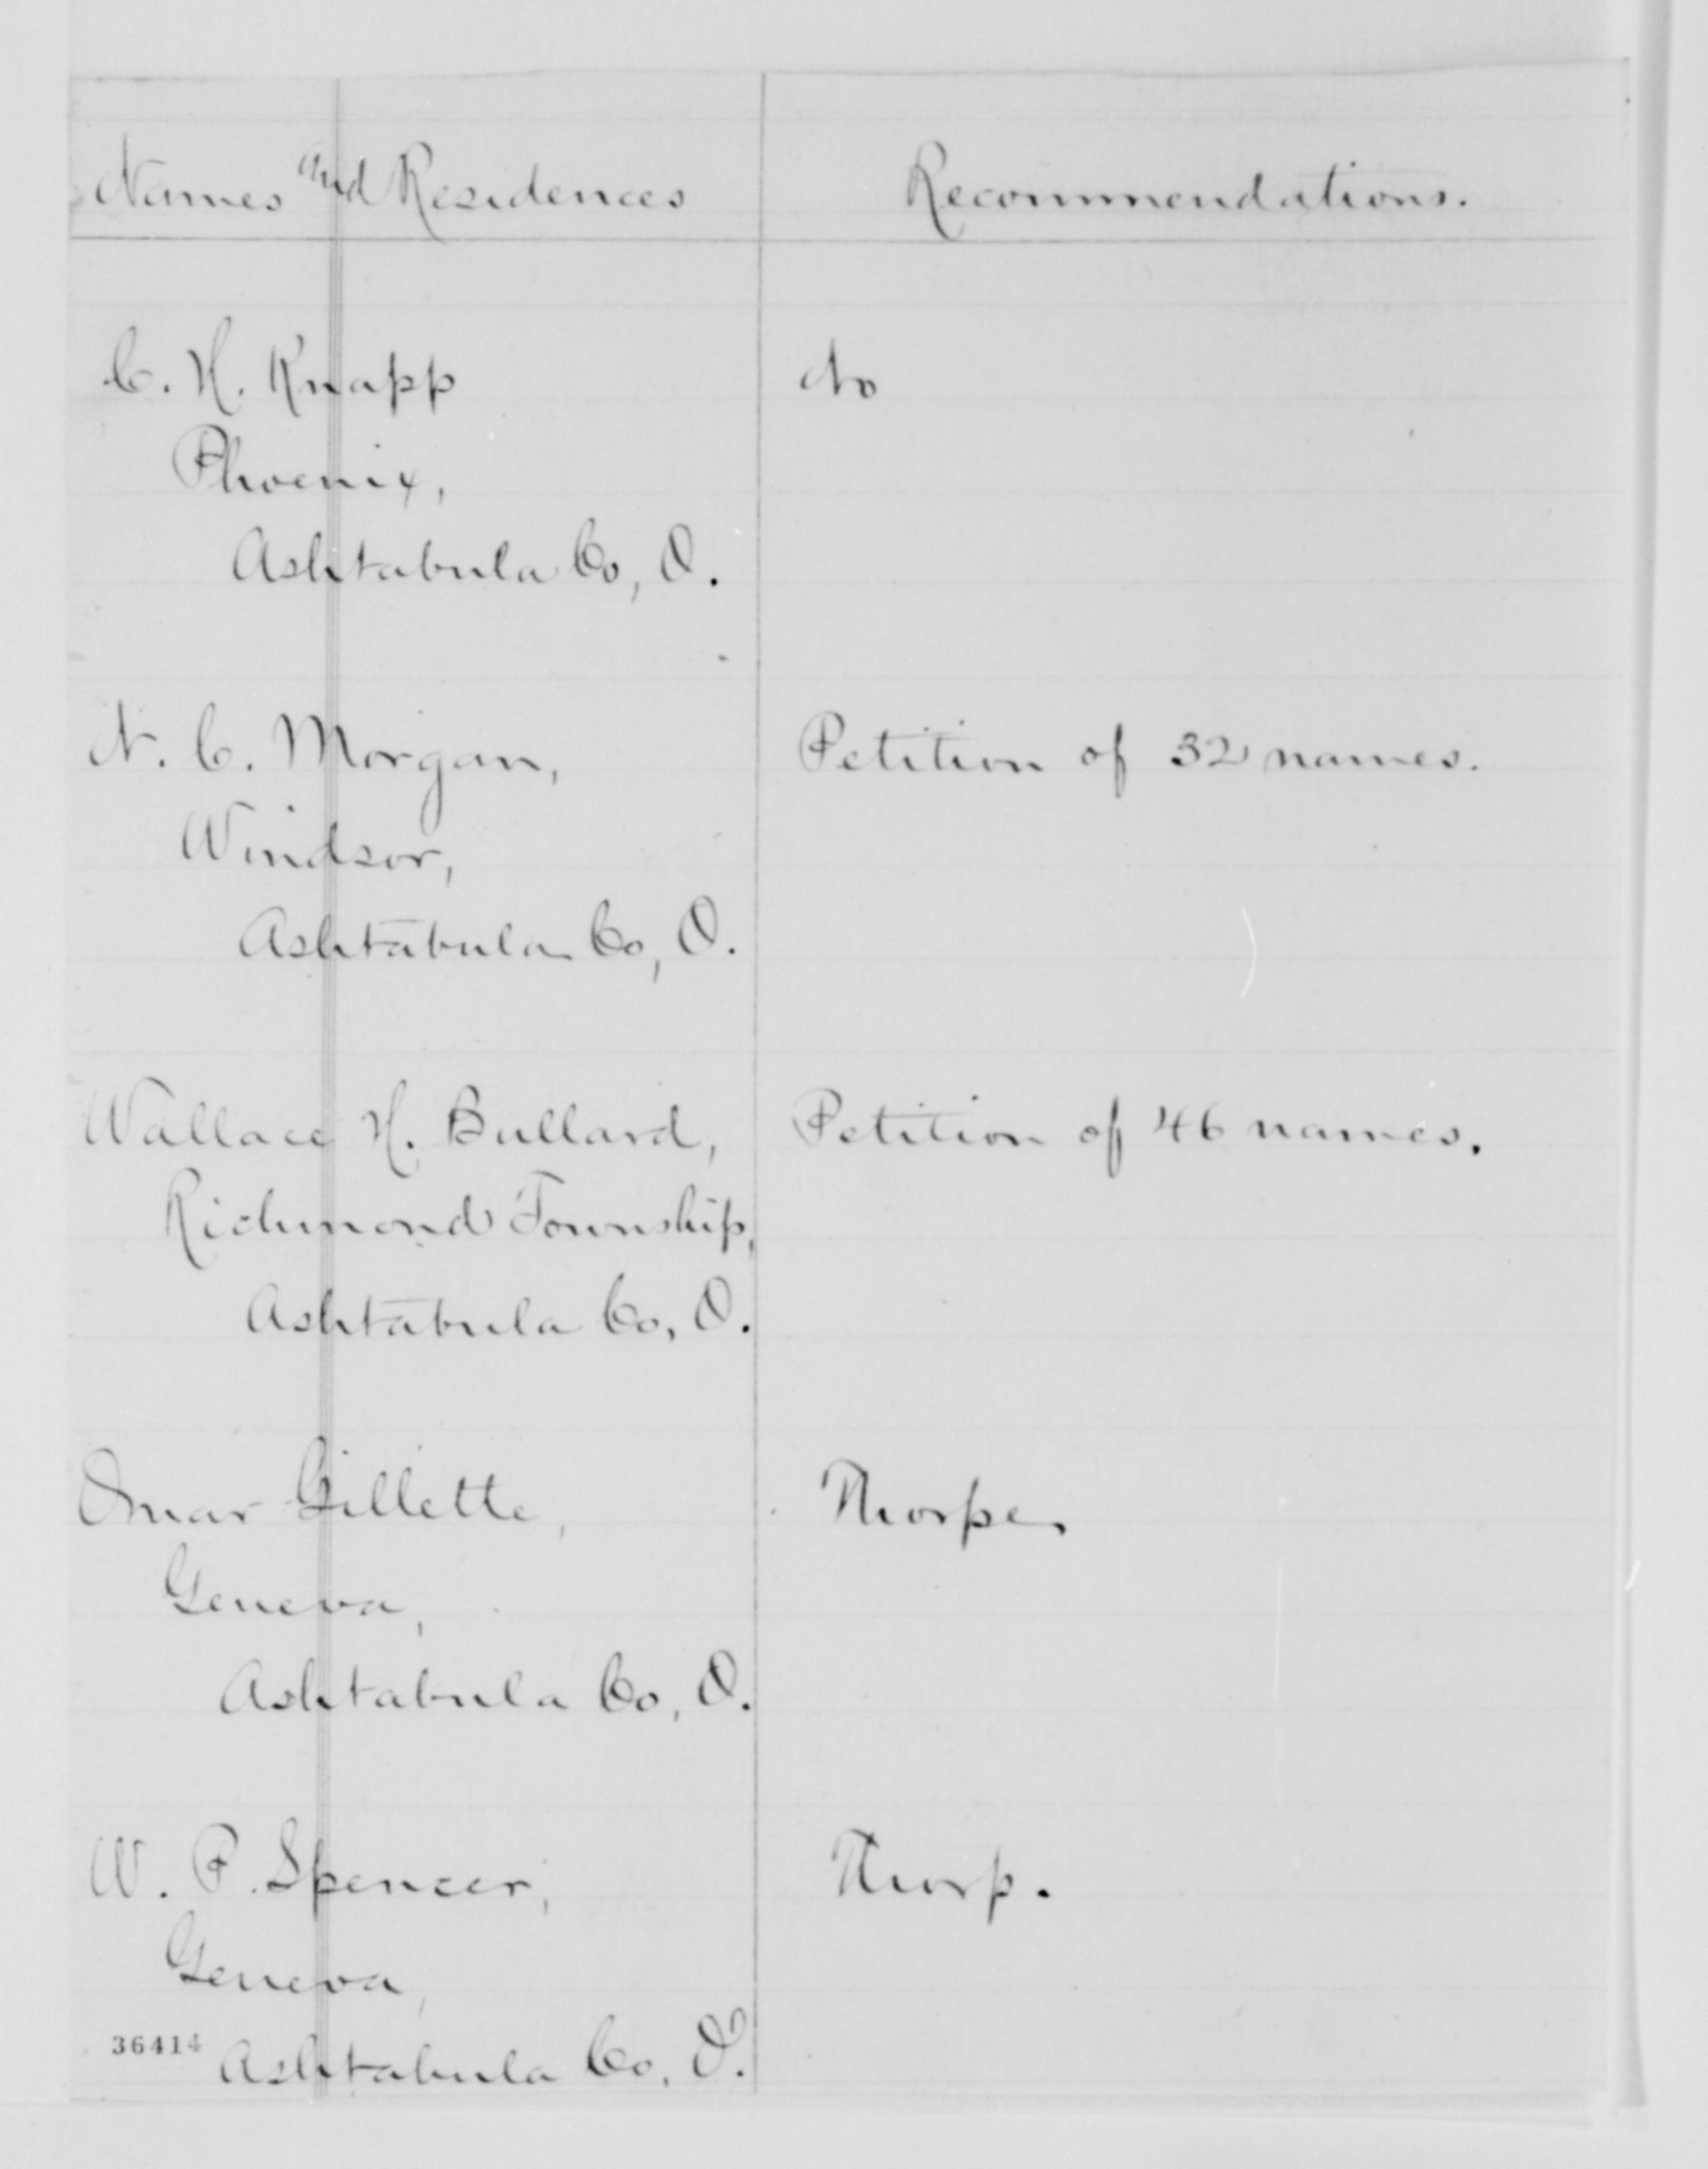 Names and Residences Recommendations.
C. H. Knapp No
Phoenix,
Ashtabula Co, O.
N. C. Morgan, Petition of 32 names.
Windsor,
Ashtabula Co, O.
Wallace H. Bullard, Petition of 46 names.
Richmond Township,
Ashtabula Co, O.
Omar Gillette, Thorpe.
Geneva,
Ashtabula Co, O.
W. P. Spencer, Thorp.
Geneva,
36414 Ashtabula Co, O.